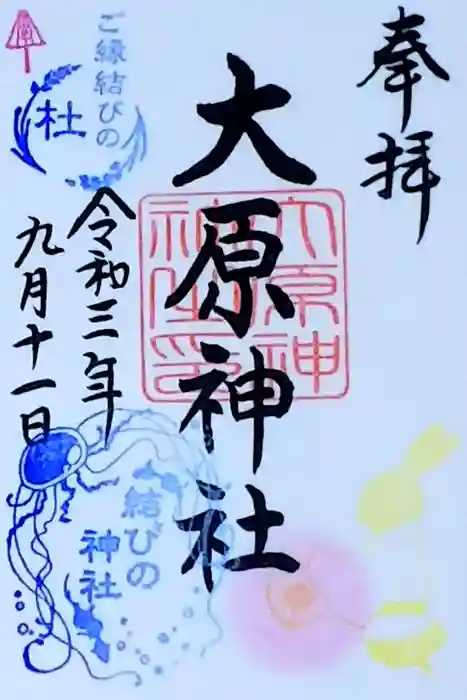 奉拝
大原神社
大原神
社印
令和三年
九月十一日
ご縁結びの
社
結びの
神社